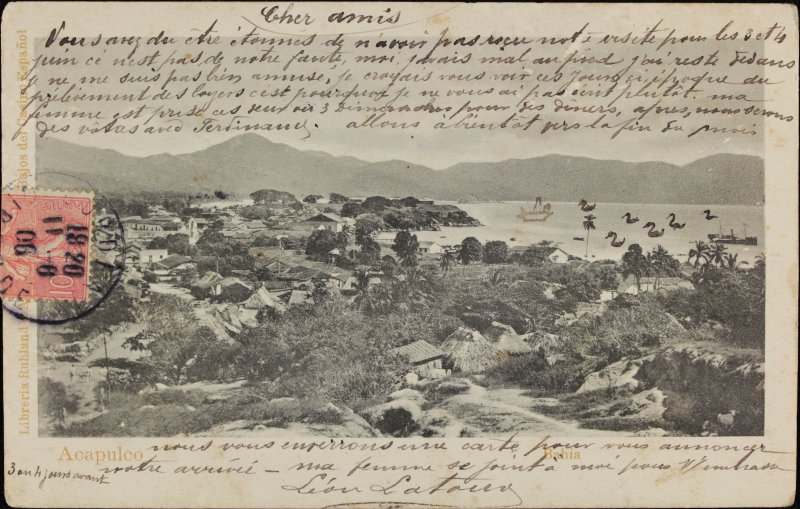 Cher amis
Vous avez du être etonnes de n'avoir pas reçu notre visite pour les 3 et 4
juin ce n'est pas de notre faute, moi, j'avais mal au pied j'ai resté dedans
je ne me suis pas bien amusé, je croyais vous voir ces jours ci, époque du
prélèvement des loyers c'est pourquoi je ne vous ai pas écrit plutôt. ma
femme est prise ces jours ci 3 dimanches pour des diners, après, nous serons
des vôtres avec Ferdinand. allons à bientôt vers la fin du mois
Librería Rubland Bajos del Casino Español
18 20
11 - 6
06
10
Acapulco
Bahia
nous vous enverrons une carte pour vous annoncer
3 ou 4 jours avant
notre arrivée - ma femme se joint à moi pour v'embrasser
Léon